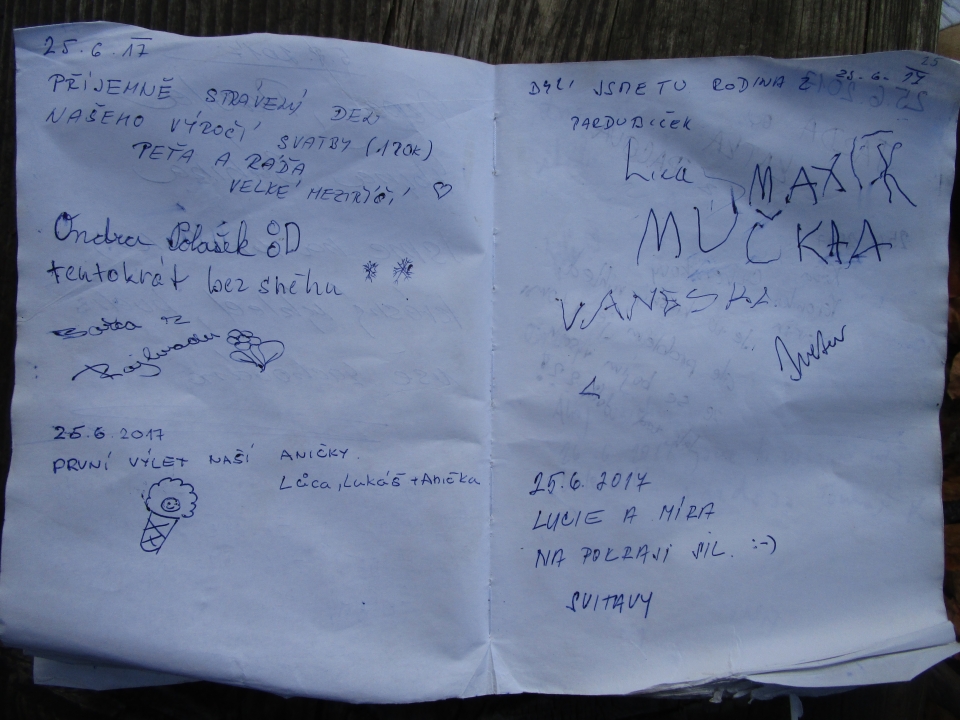 25.6.17
PŘÍJEMNĚ STRÁVENÝ DEN
NAŠEHO VÝROČÍ SVATBY (1.ROK)
PEŤA A RÁĎA
VELKÉ MEZIŘÍČÍ ♡
Ondra Polášek
tentokrát bez sněhu
25.6.2017
PRVNÍ VÝLET NAŠÍ ANIČKY.
Lůca, Lukáš + Anička
25
25.6.17
BYLI JSME TU RODINA Z
PARDUBIČEK
Lica
MAXÍK
MUČKAA
VANESKA
25.6.2017
LUCIE A MÍRA
NA POKRAJI SIL. :-)
SVITAVY